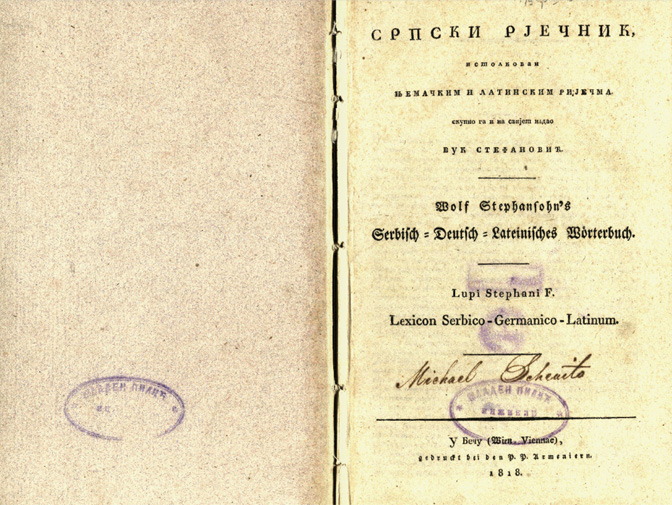 СРПСКИ РЈЕЧНИК,
истолкован
ЊЕМАЧКИМ И ЛАТИНСКИМ РИЈЕЧМА.
скупио га и на свијет издао
ВУК СТЕФАНОВИЋ.
Wolf Stephansohn's
Serbisch-Deutsch-Lateinisches Wörterbuch.
Lupi Stephani F.
Lexicon Serbico-Germanico-Latinum.
Michael
МЛАДЕН ПИЛИЋ
МЛАДЕН ПИЛИЋ
У Бечу (Wien, Viennae),
gedruckt bei den P. P. Armeniern.
1818.